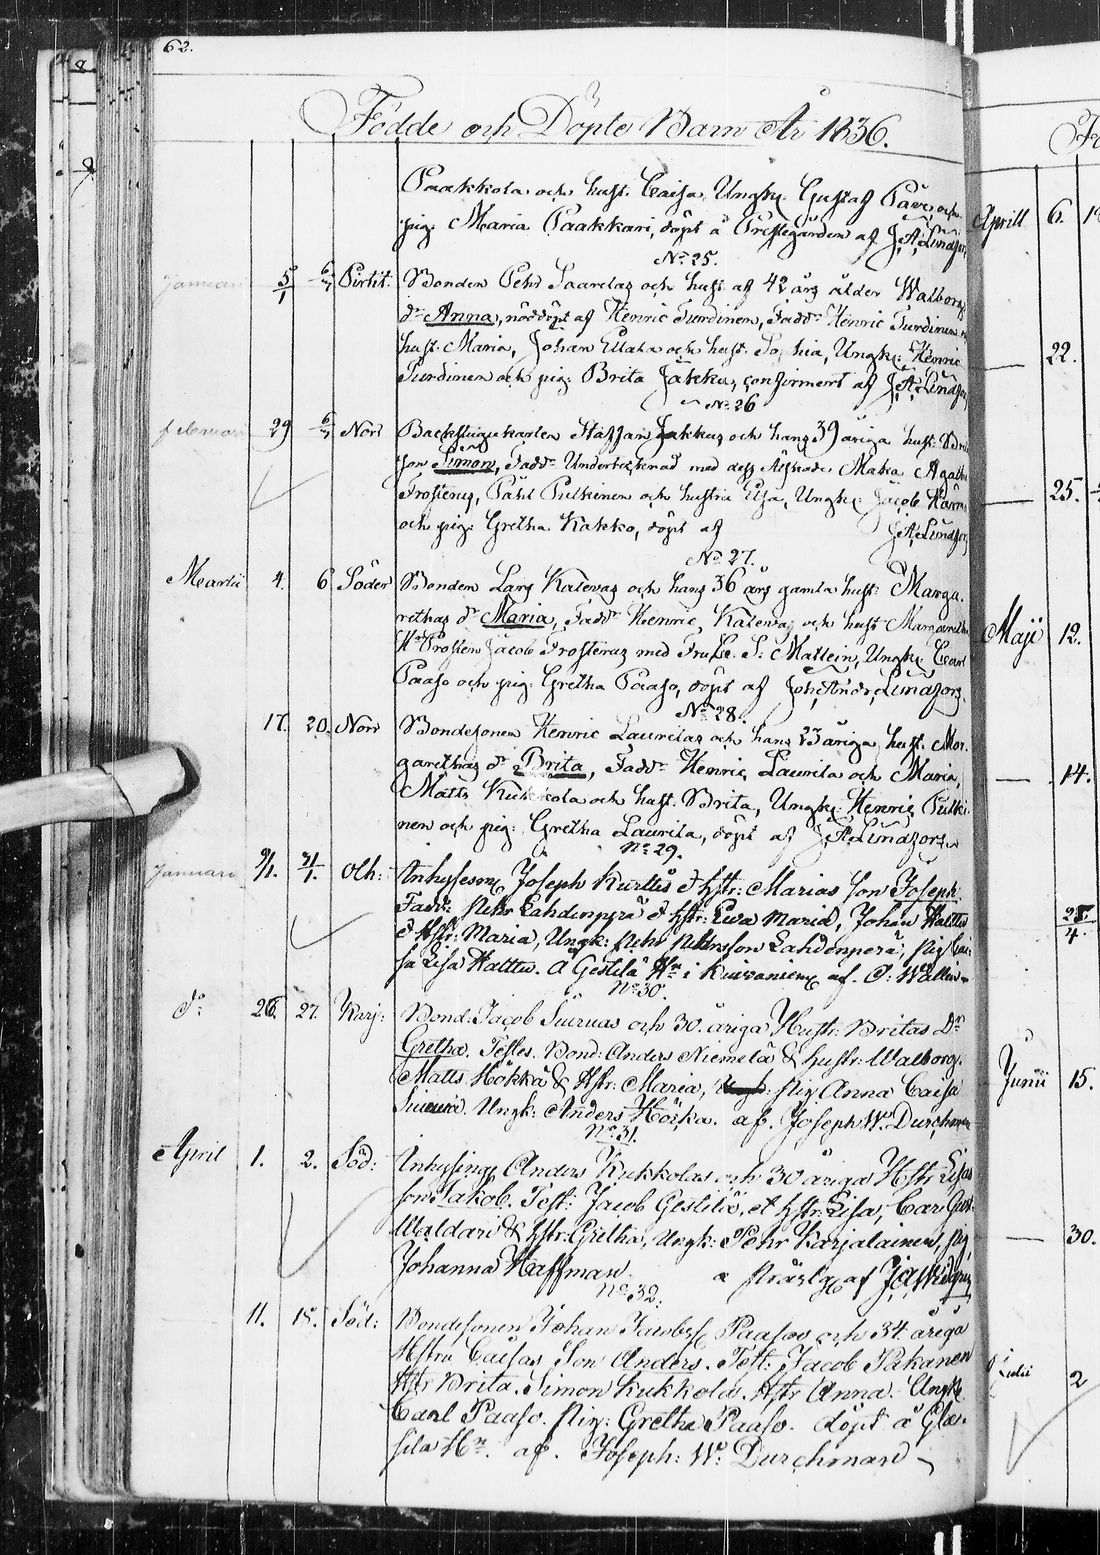 62.
Födde och Döpte Barn År 1836.
Paakkola och hust. Caisa, Ungk. Gustaf Pave, och
pig. Maria Paakkari, döpt å Prestegården af J.A. Lindfors
No 25.
Januari 5/1 6/1 Pirtit. Bonden Pehr Saarelas och hust. af 42 års ålder Walborg
dr Anna, nöddöpt af Henric Turdinen, Fadd. Henric Turdinen
hust. Maria, Johan Ellala och hust. Sophia, Ungk: Henric
Turdinen och pig: Brita Jakku, confirmert af J.A. Lindfors
No 26
februari 29 Nor Backstugukarlen Staffan Jakkus och hans 39 åriga hust.
son Simon, Fadd. Undertecknad med dess Älskade Maka Agatha
Frosterus, Påhl Pulkinen och hustru Elsa, Ungk: Jacob
och pig: Gretha Kakko, döpt af J.A. Lindfors
No 27.
Martii 4. 6. Söder Bonden Lars Kalevas och hans 36 års gamla hust: Marga-
rethas dr Maria, Fadd. Henric Kaleva och hust Margaretha
Hr Prosten Jacob Frosterus med Fru Matlein, Ungk: Carl
Paaso och pig: Gretha Paaso, döpt af Joh: Andr: Lindfors.
No 28.
17. 20. Nor Bondesonen Henric Laurilas och hans 23 åriga hust. Mar-
garethas dr Brita, Fadd. Henric Laurila och Maria,
Matts Kukkola och hust. Brita, Ungk: Henric Pulki-
nen och pig: Gretha Laurila, döpt af J.A. Lindfors
No 29.
Januari 9/1. 31/1. Olh: Inhyses Joseph Kurttis & Hstr: Marias Son Joseph.
Fadd: Pehr Lahdenperä & Hstr: Ewa Maria, Johan Halttu
& Hstr: Maria, Ungk: Pehr Pehrsson Lahdenperä, Pig Cai-
sa Lisa Halttu. å Gestilä Hn i Kuivaniemi af. C: Wallin
No 30.
do 26. 27. Karj: Bond. Jacob Siuruas och 30. åriga Hustr. Britas Dr
Gretha. Testes. Bond: Anders Niemelä & hustr: Walborg.
Matts Hökkä & Hstr: Maria, Pig Anna Caisa
Siurua. Ungk: Anders Hökka. af. Joseph Wm Durchman
No 31.
April 1. 2. Söd: Inhysing Anders Kukkolas och 30 åriga Hstr Lisas
son Jakob. Test: Jacob Gestilä, et Hstr: Lisa, Carl Gust.
Waldari & Hstr: Gretha, Ungk: Pehr Karjalainen, pig
Johanna Haffman. a Prästg af
No 32.
11. 15. Söd: Bondesonen Johan Jacobss. Paasos och 34. åriga
Hstru Caisas Son Anders. Test: Jacob Pakanen
Hstr Brita. Simon Kukkola. Hstr Anna. Ungk:
Carl Paaso. Pig: Gretha Paaso. döpt å
sila Hn. af. Joseph: Wm Durchman
Aprill 6.
22.
25.
Maji 12.
14.
25./4.
Junii 15.
30.
Julii 2